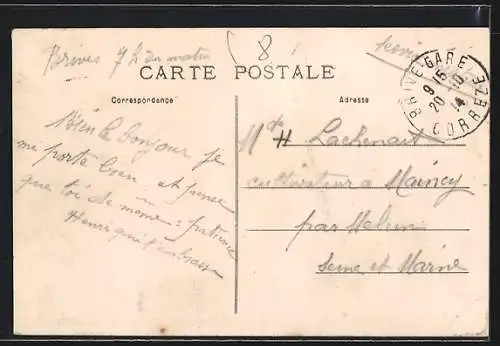 Brives 7 h du matin
8
CARTE POSTALE
Correspondance
Adresse
BRIVE-GARE
9 15
20 - 10
14
CORREZE
Bien le bonjour je
me porte bien et pense
que toi de même : patience
Henri qui t'embrasse
Lachenait
cultivateur a Maincy
par Melun
Seine et Marne